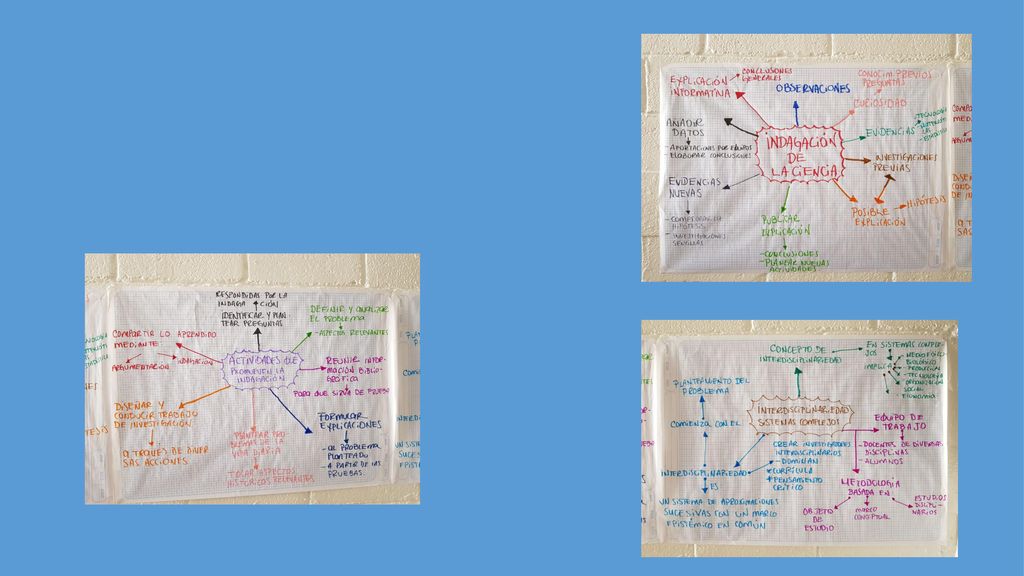 EXPLICACIÓN
INFORMATIVA
CONCLUSIONES
GENERALES
OBSERVACIONES
CONOCIM. PREVIOS
PREGUNTAS
CURIOSIDAD
AÑADIR
DATOS
- APORTACIONES POR EQUIPOS
ELABORAR CONCLUSIONES
INDAGACIÓN
DE
LA CIENCIA
EVIDENCIAS
INVESTIGACIONES
PREVIAS
EVIDENCIAS
NUEVAS
HIPÓTESIS
POSIBLE
EXPLICACIÓN
PUBLICAR
EXPLICACIÓN
- CONCLUSIONES
- PLANEAR NUEVAS
ACTIVIDADES
RESPONDIDAS POR LA
INDAGACIÓN
IDENTIFICAR Y PLAN
TEAR PREGUNTAS
EL PROBLEMA
- ASPECTOS RELEVANTES
COMPARTIR LO APRENDIDO
MEDIANTE
ARGUMENTACIÓN
INDAGACIÓN
ACTIVIDADES QUE
PROMUEVEN LA
INDAGACIÓN
REUNIR INFOR-
MACIÓN BIBLIO-
GRÁFICA
PARA QUE SIRVE DE PRUEBA
DISEÑAR Y
CONDUCIR TRABAJO
DE INVESTIGACIÓN
A TRAVÉS DE DIVER
SAS ACCIONES
PLANTEAR PRO
BLEMAS DE LA
VIDA DIARIA
TOCAR ASPECTOS
HISTÓRICOS RELEVANTES
FORMULAR
EXPLICACIONES
- AL PROBLEMA
PLANTEADO
- A PARTIR DE LAS
PRUEBAS.
CONCEPTO DE
INTERDISCIPLINARIEDAD
EN SISTEMAS COMPLE
JOS
IMPLICA
PLANTEAMIENTO DEL
PROBLEMA
INTERDISCIPLINARIEDAD
SISTEMAS COMPLEJOS
COMIENZA CON EL
EQUIPO DE
TRABAJO
- DOCENTES DE DIVERSAS
DISCIPLINAS
- ALUMNOS
CREAR INVESTIGADORES
INTERDISCIPLINARIOS
- DOMINIAN
CURRÍCULA
PENSAMIENTO
CRÍTICO
INTERDISCIPLINARIEDAD
ES
UN SISTEMA DE APROXIMACIONES
SUCESIVAS CON UN MARCO
EPISTÉMICO EN COMÚN
METODOLOGÍA
BASADA EN
OBJETO
DE
ESTUDIO
MARCO
CONCEPTUAL
ESTUDIOS
DISCIPLI-
NARIOS